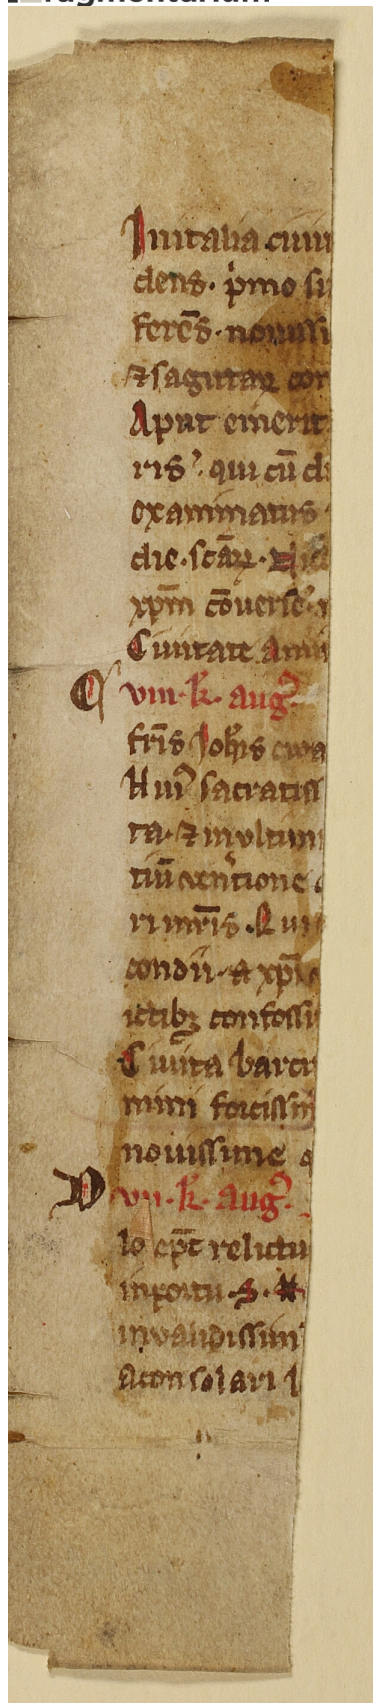 In italia ciui
dens. p̍mo si
ferēs. nouissi
⁊ sagittaꝝ cor
Aput emerit
ris. qui cū d
examinatus
die. sc̄aꝝ.
xp̄m cōuerse.
Ciuitate Ami
C viii. kl̄. aug̉.
fr̄is Joh̄is ewa
Hui᷒ sacratiss
ta. ⁊ in vltim
tiū
ri mr̄is. Qui
condii. a xp̄i
ictibꝫ confossi
Ciuita barci
mini fortissim
nouissime q
D vii. kl̄. aug̉.
lo ep̄c relictu
in portu. s.
inualidissim
a consolari l